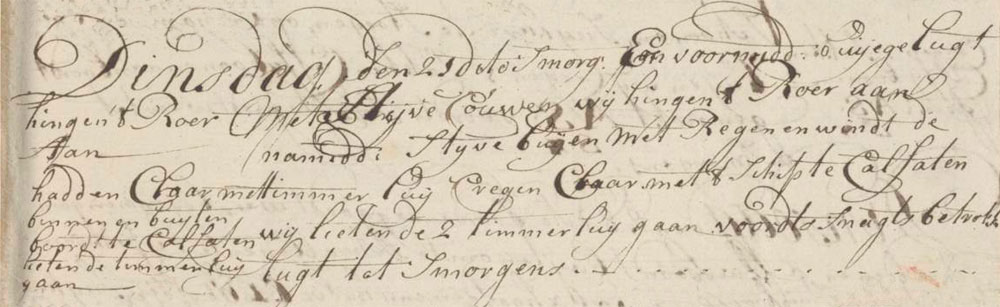 Dinsdag, den 25 dito Smorg: En voormidd: buijege lugt
hingen t Roer Met Styve Couwen wij hingen t Roer aan
Aan namidd: Styve buijen met Regen en windt de
hadden Claar mettimmer luij Cregen Claar met t Schip te Calfaten
binnen en buyten
boordt te Calfaten wij lieten de 2 timmerluij gaan voordts Snagts betrokk
lieten de timmerluij lugt tot Smorgens
gaan